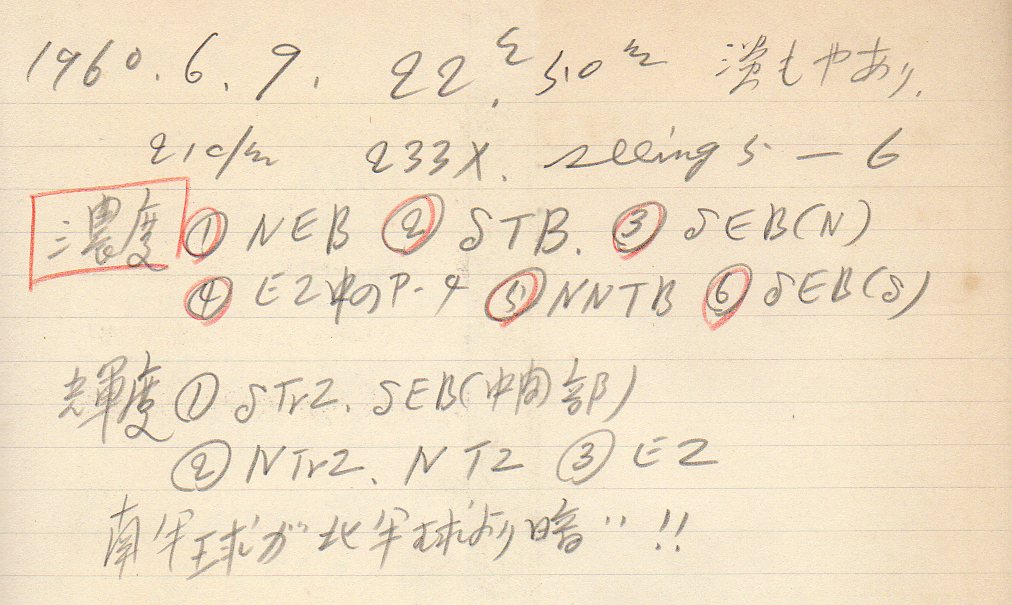 1960. 6. 9. 22.h 50m 淡もやあり.
21c/m 233X. seeing 5 — 6
濃度 ① NEB ② STB. ③ SEB(N)
④ EZ中のP-4 ⑤ NNTB ⑥ SEB(S)
輝度 ① STrZ. SEB(中間部)
② NTrZ. NTZ ③ EZ
南半球が北半球より暗い!!